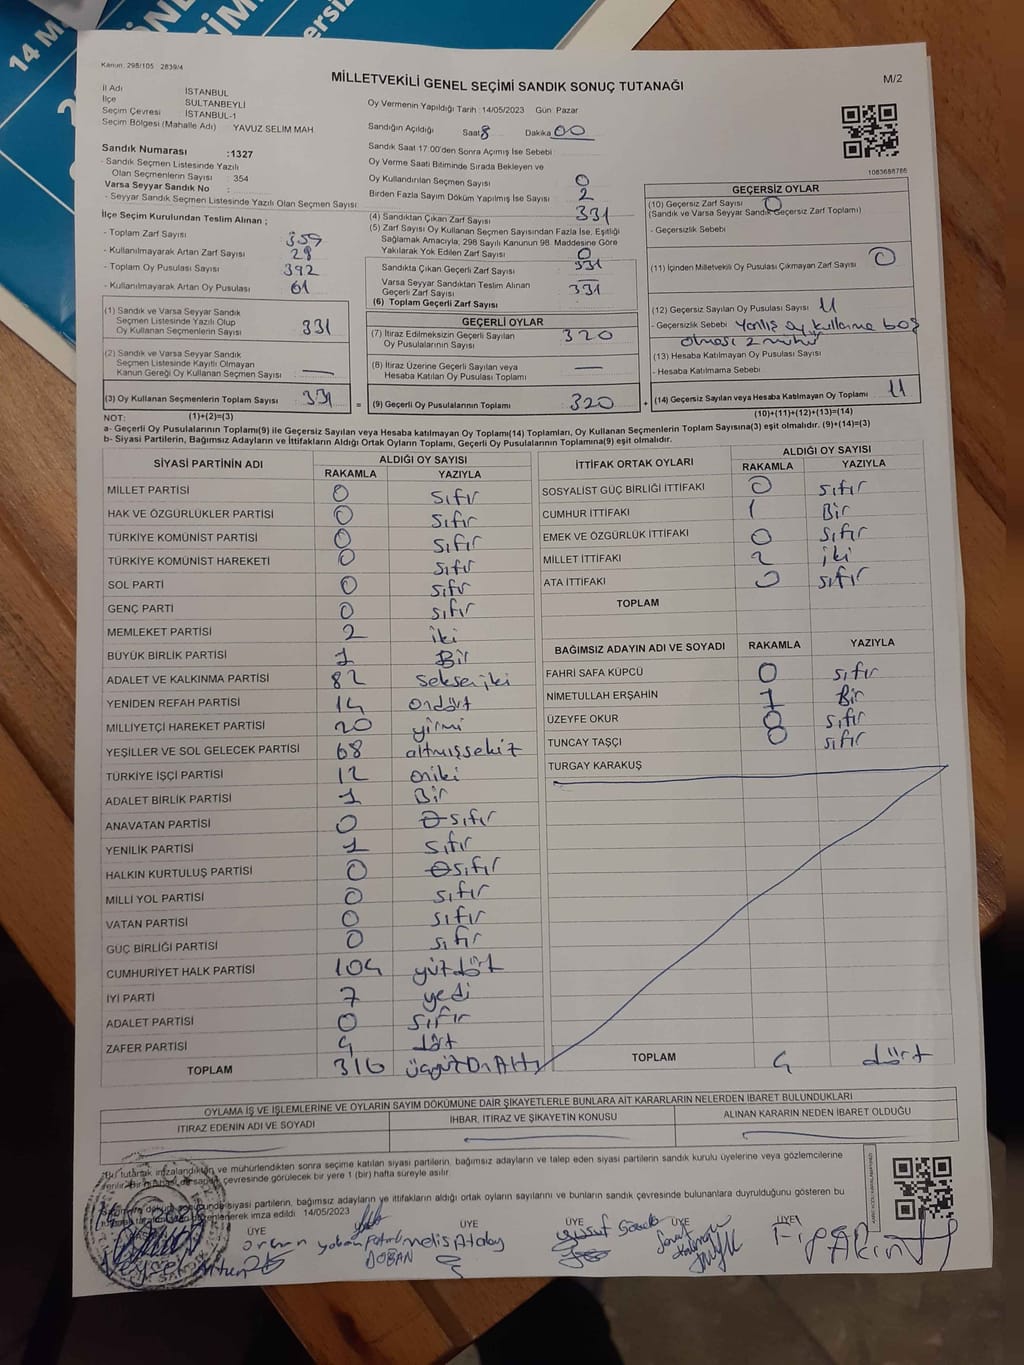 14 M
ersiz
Kanun: 298/105 2839/4
MİLLETVEKİLİ GENEL SEÇİMİ SANDIK SONUÇ TUTANAĞI
M/2
İl Adı İSTANBUL
İlçe SULTANBEYLİ
Seçim Çevresi İSTANBUL-1
Seçim Bölgesi (Mahalle Adı) YAVUZ SELİM MAH
Sandık Numarası :1327
- Sandık Seçmen Listesinde Yazılı
Olan Seçmenlerin Sayısı 354
Varsa Seyyar Sandık No :
- Seyyar Sandık Seçmen Listesinde Yazılı Olan Seçmen Sayısı
İlçe Seçim Kurulundan Teslim Alınan ;
- Toplam Zarf Sayısı 359
- Kullanılmayarak Artan Zarf Sayısı 28
- Toplam Oy Pusulası Sayısı 392
- Kullanılmayarak Artan Oy Pusulası 61
(1) Sandık ve Varsa Seyyar Sandık
Seçmen Listesinde Yazılı Olup
Oy Kullanan Seçmenlerin Sayısı 331
(2) Sandık ve Varsa Seyyar Sandık
Seçmen Listesinde Kayıtlı Olmayan
Kanun Gereği Oy Kullanan Seçmen Sayısı : —
(3) Oy Kullanan Seçmenlerin Toplam Sayısı : 331
Oy Vermenin Yapıldığı Tarih : 14/05/2023 Gün: Pazar
Sandığın Açıldığı Saat 8 Dakika 00
Sandık Saat 17:00'den Sonra Açımış İse Sebebi :
Oy Verme Saati Bitiminde Sırada Bekleyen ve
Oy Kullandırılan Seçmen Sayısı 0
Birden Fazla Sayım Döküm Yapılmış İse Sayısı 2
(4) Sandıktan Çıkan Zarf Sayısı 331
(5) Zarf Sayısı Oy Kullanan Seçmen Sayısından Fazla İse, Eşitliği
Sağlamak Amacıyla, 298 Sayılı Kanunun 98. Maddesine Göre
Yakılarak Yok Edilen Zarf Sayısı 0
Sandıkta Çıkan Geçerli Zarf Sayısı 331
Varsa Seyyar Sandıktan Teslim Alınan
Geçerli Zarf Sayısı —
(6) Toplam Geçerli Zarf Sayısı : 331
GEÇERLİ OYLAR
(7) İtiraz Edilmeksizin Geçerli Sayılan
Oy Pusulalarının Sayısı 320
(8) İtiraz Üzerine Geçerli Sayılan veya
Hesaba Katılan Oy Pusulası Toplamı —
= (9) Geçerli Oy Pusulalarının Toplamı 320 +
1083688786
GEÇERSİZ OYLAR
(10) Geçersiz Zarf Sayısı 0
(Sandık ve Varsa Seyyar Sandık Geçersiz Zarf Toplamı)
- Geçersizlik Sebebi
(11) İçinden Milletvekili Oy Pusulası Çıkmayan Zarf Sayısı 0
(12) Geçersiz Sayılan Oy Pusulası Sayısı 11
- Geçersizlik Sebebi Yanlış oy kullanma boş
olması 2 mühür
(13) Hesaba Katılmayan Oy Pusulası Sayısı
- Hesaba Katılmama Sebebi
(14) Geçersiz Sayılan veya Hesaba Katılmayan Oy Toplamı 11
NOT: (1)+(2)=(3) (10)+(11)+(12)+(13)=(14)
a- Geçerli Oy Pusulalarının Toplamı(9) ile Geçersiz Sayılan veya Hesaba katılmayan Oy Toplamı(14) Toplamları, Oy Kullanan Seçmenlerin Toplam Sayısına(3) eşit olmalıdır. (9)+(14)=(3)
b- Siyasi Partilerin, Bağımsız Adayların ve İttifakların Aldığı Ortak Oyların Toplamı, Geçerli Oy Pusulalarının Toplamına(9) eşit olmalıdır.
SİYASİ PARTİNİN ADI ALDIĞI OY SAYISI
RAKAMLA YAZIYLA
MİLLET PARTİSİ 0 sıfır
HAK VE ÖZGÜRLÜKLER PARTİSİ 0 sıfır
TÜRKİYE KOMÜNİST PARTİSİ 0 sıfır
TÜRKİYE KOMÜNİST HAREKETİ 0 sıfır
SOL PARTİ 0 sıfır
GENÇ PARTİ 0 sıfır
MEMLEKET PARTİSİ 2 iki
BÜYÜK BİRLİK PARTİSİ 1 Bir
ADALET VE KALKINMA PARTİSİ 82 seksen iki
YENİDEN REFAH PARTİSİ 14 ondört
MİLLİYETÇİ HAREKET PARTİSİ 20 yirmi
YEŞİLLER VE SOL GELECEK PARTİSİ 68 altmışsekiz
TÜRKİYE İŞÇİ PARTİSİ 12 oniki
ADALET BİRLİK PARTİSİ 1 Bir
ANAVATAN PARTİSİ 0 sıfır
YENİLİK PARTİSİ 1 sıfır
HALKIN KURTULUŞ PARTİSİ 0 sıfır
MİLLİ YOL PARTİSİ 0 sıfır
VATAN PARTİSİ 0 sıfır
GÜÇ BİRLİĞİ PARTİSİ 0 sıfır
CUMHURİYET HALK PARTİSİ 104 yüzdört
İYİ PARTİ 7 yedi
ADALET PARTİSİ 0 sıfır
ZAFER PARTİSİ 4 dört
TOPLAM 316 üçyüz On Altı
İTTİFAK ORTAK OYLARI ALDIĞI OY SAYISI
RAKAMLA YAZIYLA
SOSYALİST GÜÇ BİRLİĞİ İTTİFAKI 0 sıfır
CUMHUR İTTİFAKI 1 Bir
EMEK VE ÖZGÜRLÜK İTTİFAKI 0 sıfır
MİLLET İTTİFAKI 2 iki
ATA İTTİFAKI 0 sıfır
TOPLAM
BAĞIMSIZ ADAYIN ADI VE SOYADI RAKAMLA YAZIYLA
FAHRİ SAFA KÜPCÜ 0 sıfır
NİMETULLAH ERŞAHİN 1 Bir
ÜZEYFE OKUR 0 sıfır
TUNCAY TAŞÇI 0 sıfır
TURGAY KARAKUŞ
TOPLAM 4 dört
OYLAMA İŞ VE İŞLEMLERİNE VE OYLARIN SAYIM DÖKÜMÜNE DAİR ŞİKAYETLERLE BUNLARA AİT KARARLARIN NELERDEN İBARET BULUNDUKLARI
İTİRAZ EDENİN ADI VE SOYADI İHBAR, İTİRAZ VE ŞİKAYETİN KONUSU ALINAN KARARIN NEDEN İBARET OLDUĞU
Bu tutanak imzalandıktan ve mühürlendikten sonra seçime katılan siyasi partilerin, bağımsız adayların ve talep eden siyasi partilerin sandık kurulu üyelerine veya gözlemcilerine
verilir. Bir çevresinde görülecek bir yere 1 (bir) hafta süreyle asılır.
siyasi partilerin, bağımsız adayların ve ittifakların aldığı ortak oyların sayılarını ve bunların sandık çevresinde bulunanlara duyrulduğunu gösteren bu
düzenlenerek imza edildi. 14/05/2023
ÜYE ÜYE ÜYE ÜYE ÜYE
DOBAN
Melis Atalay
Yusuf
Akın